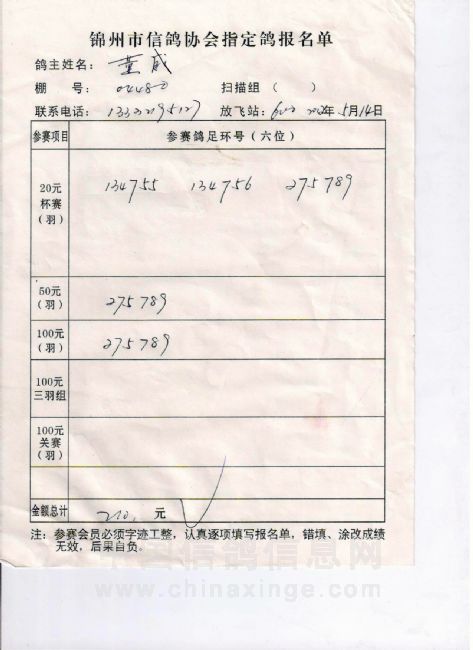 锦州市信鸽协会指定鸽报名单
鸽主姓名：董威
棚　号：04480　扫描组（　）
联系电话：13322195127　放飞站：　5月14日
参赛项目　参赛鸽足环号（六位）
20元杯赛（羽）　134755　134756　275789
50元（羽）　275789
100元（羽）　275789
100元三羽组
100元关赛（羽）
金额总计　210.　元
注：参赛会员必须字迹工整，认真逐项填写报名单，错填、涂改成绩
无效，后果自负。
中国信鸽信息网
www.chinaxinge.com